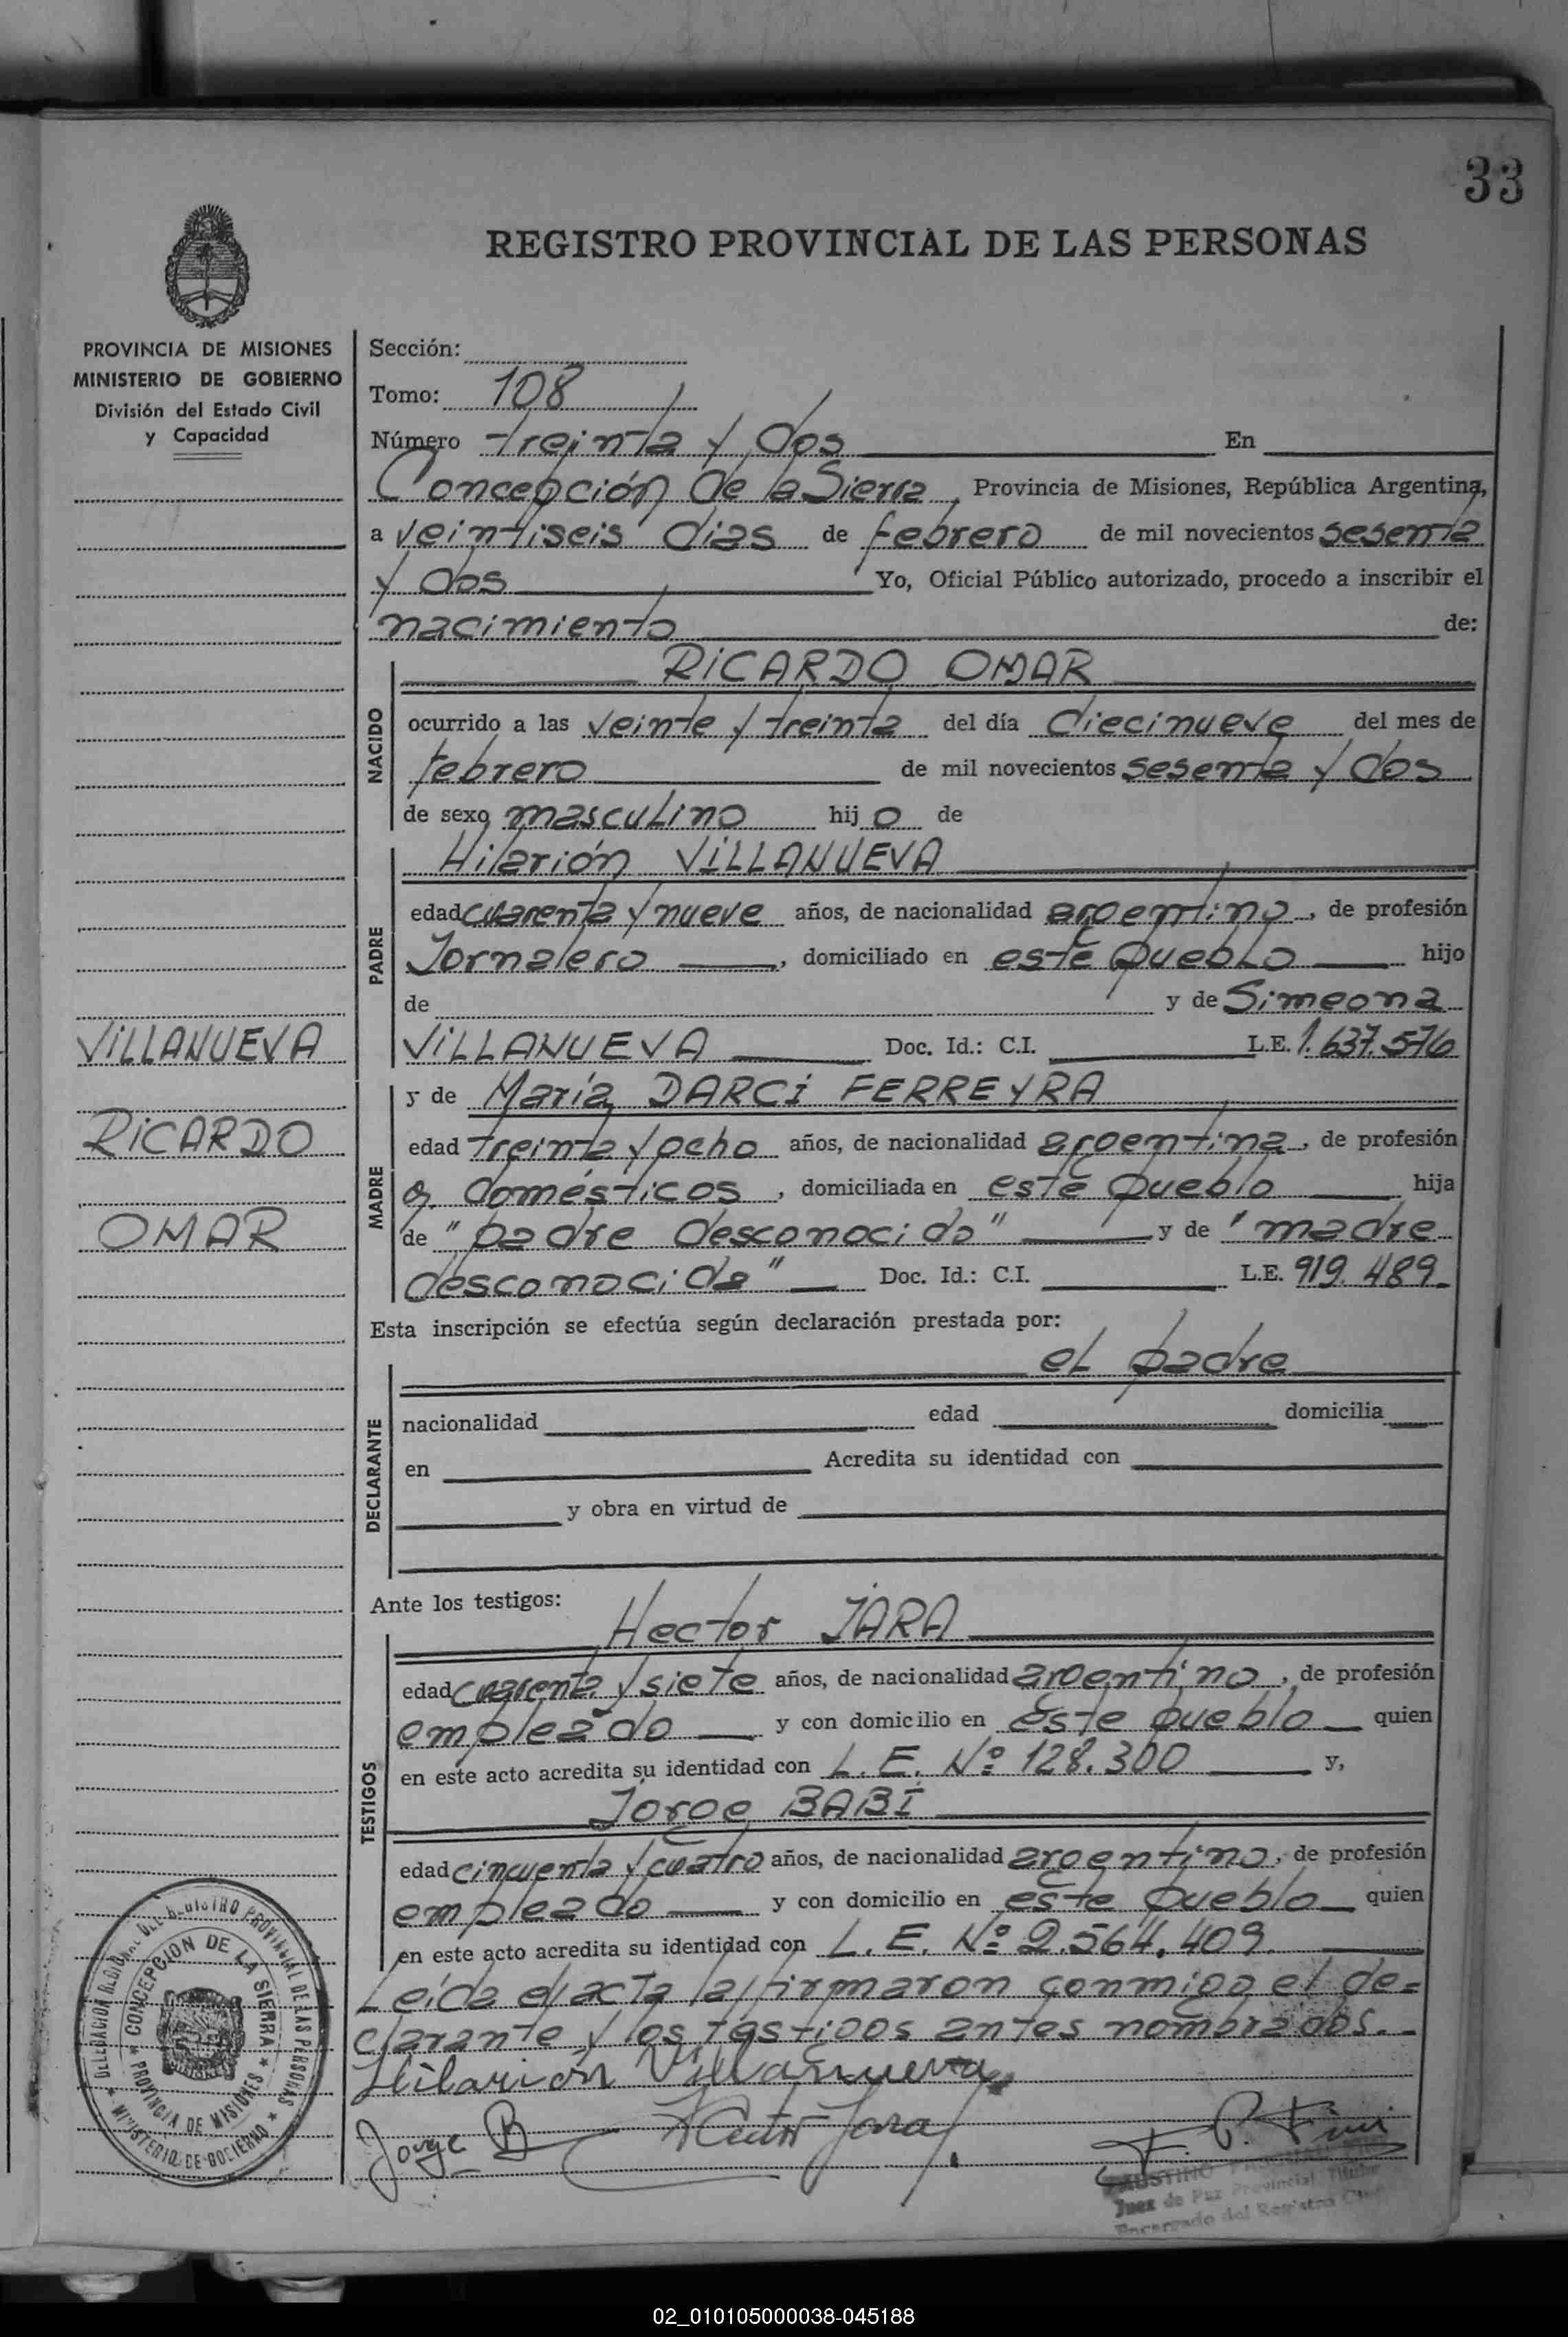 33
REGISTRO PROVINCIAL DE LAS PERSONAS
PROVINCIA DE MISIONES
MINISTERIO DE GOBIERNO
División del Estado Civil
y Capacidad
Sección:
Tomo: 108
Número treinta y dos En
Concepción de la Sierra, Provincia de Misiones, República Argentina,
a veintiseis dias de febrero de mil novecientos sesenta
y dos Yo, Oficial Público autorizado, procedo a inscribir el
nacimiento de:
NACIDO
RICARDO OMAR
ocurrido a las veinte y treinta del día diecinueve del mes de
febrero de mil novecientos sesenta y dos
de sexo masculino hijo de
PADRE
Hilarión VILLANUEVA
edad cuarenta y nueve años, de nacionalidad argentino, de profesión
Jornalero, domiciliado en este pueblo hijo
de y de Simeona
VILLANUEVA Doc. Id.: C.I. L.E. 1.637.576
MADRE
y de María DARCI FERREYRA
edad treinta y ocho años, de nacionalidad argentina, de profesión
q. domésticos, domiciliada en este pueblo hija
de "padre desconocido" y de "madre
desconocida" Doc. Id.: C.I. L.E. 919.489.
VILLANUEVA
RICARDO
OMAR
Esta inscripción se efectúa según declaración prestada por:
DECLARANTE
el padre
nacionalidad edad domicilia
en Acredita su identidad con
y obra en virtud de
Ante los testigos:
TESTIGOS
Hector JARA
edad cuarenta y siete años, de nacionalidad argentino, de profesión
empleado y con domicilio en este pueblo quien
en este acto acredita su identidad con L.E. Nº 128.300 y,
Jorge BABI
edad cincuenta y cuatro años, de nacionalidad argentino, de profesión
empleado y con domicilio en este pueblo quien
en este acto acredita su identidad con L.E. Nº 2.564.409.
Leída el acta la firmaron conmigo el de=
clarante y los testigos antes nombrados.-
Hilarión Villanueva
Jorge B Hector Jara
F. P. Fini
FAUSTINO
Juez de Paz Provincial Titular
Encargado del Registro
DELEGACION REGIONAL DEL REGISTRO PROVINCIAL DE LAS PERSONAS
* MINISTERIO DE GOBIERNO *
CONCEPCION DE LA SIERRA
* PROVINCIA DE MISIONES *
MISIONES
02_010105000038-045188